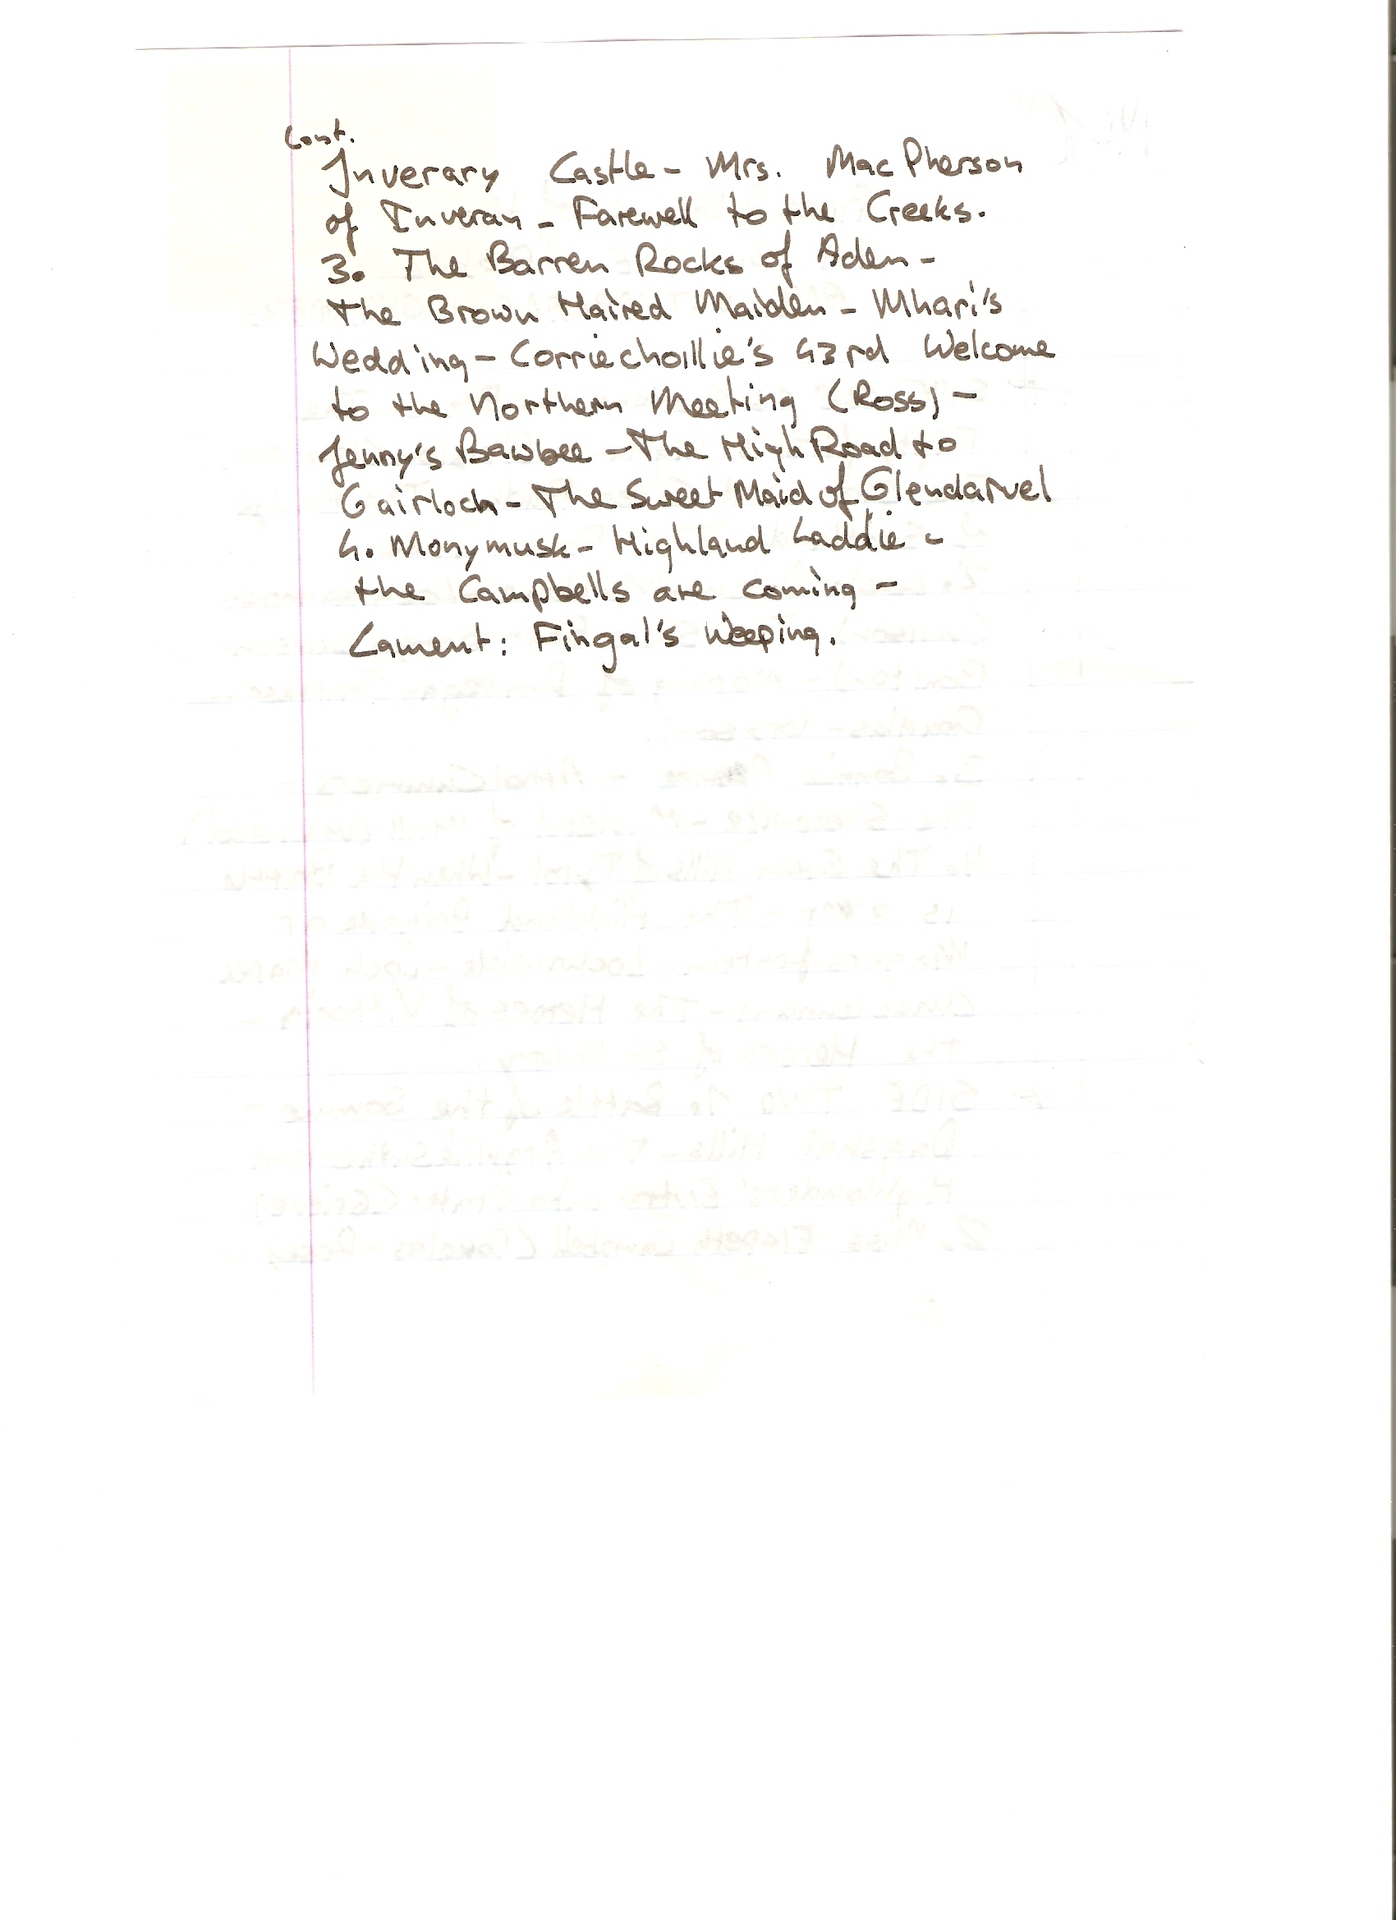 Cont.
Inverary Castle - Mrs. MacPherson
of Inveran - Farewell to the Creeks.
3. The Barren Rocks of Aden -
the Brown Haired Maiden - Mhari's
Wedding - Corriechoillie's 43rd Welcome
to the Northern Meeting (Ross) -
Jenny's Bawbee - The High Road to
Gairloch - The Sweet Maid of Glendaruel
4. Monymusk - Highland Laddie -
the Campbells are coming -
Lament: Fingal's Weeping.